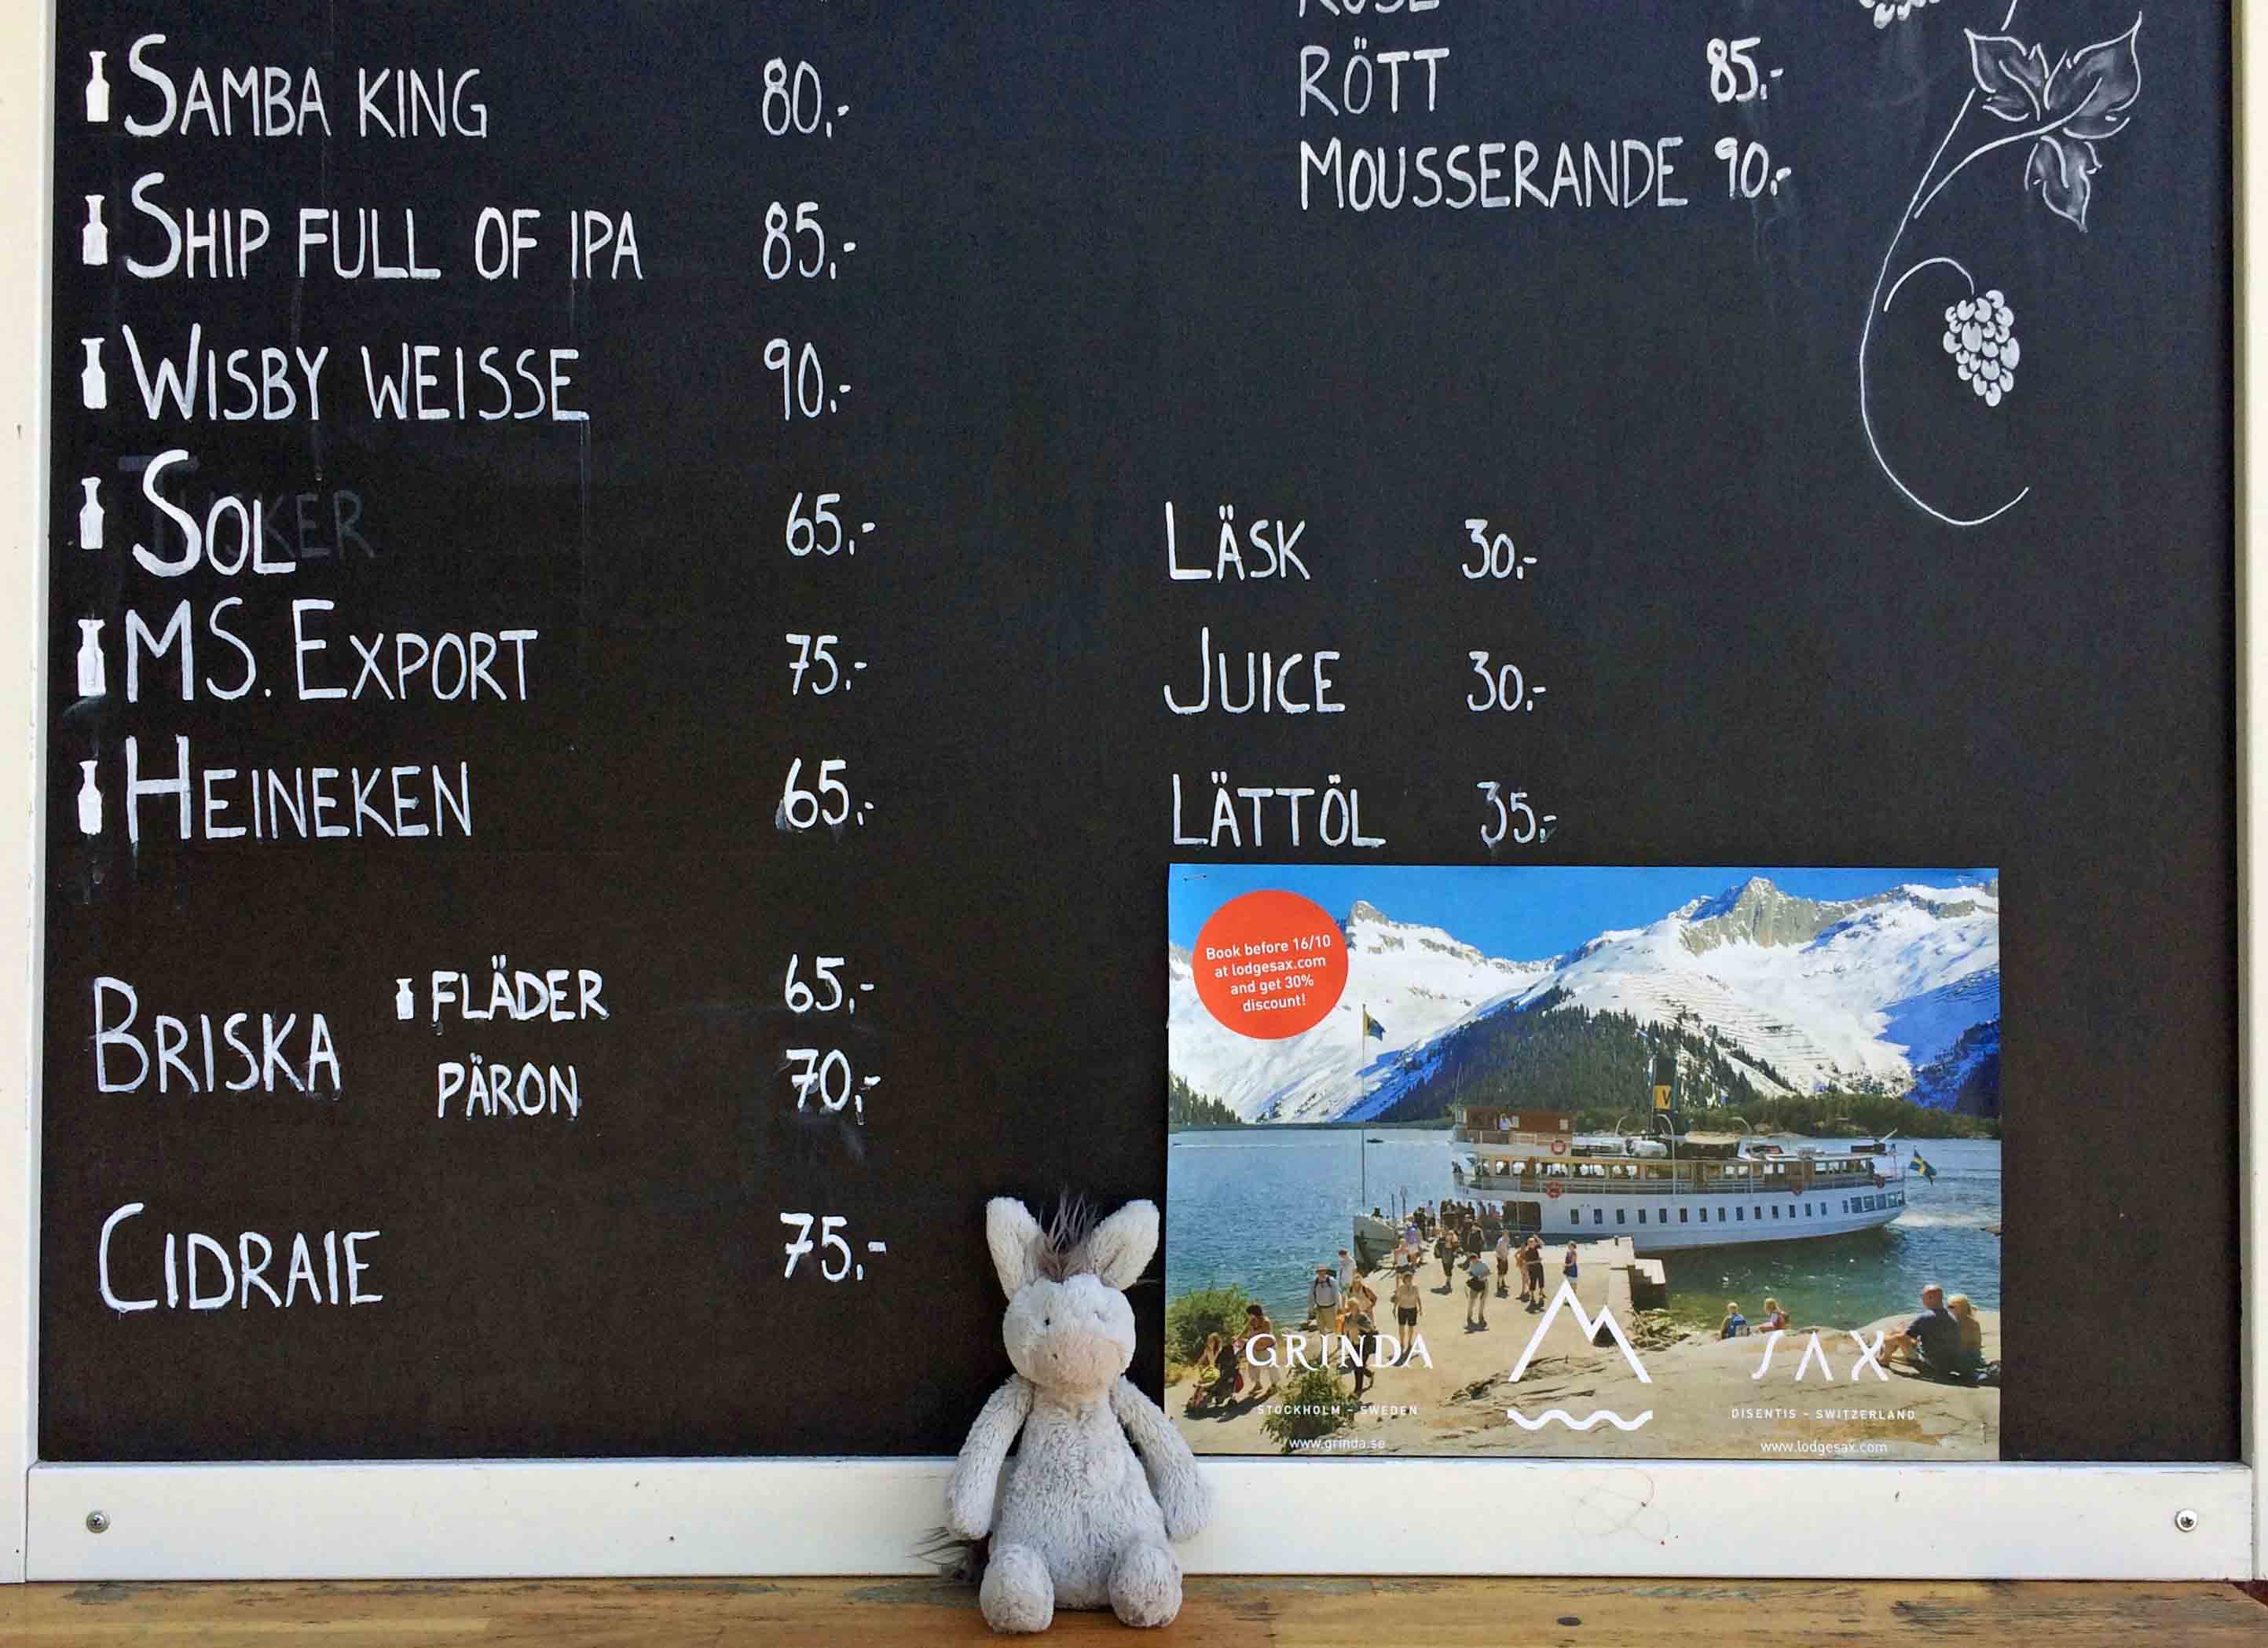 SAMBA KING 80,-
SHIP FULL OF IPA 85,-
WISBY WEISSE 90,-
SOL 65,-
MS. EXPORT 75,-
HEINEKEN 65,-
BRISKA FLÄDER 65,-
PÄRON 70,-
CIDRAIE 75,-
RÖTT 85,-
MOUSSERANDE 90,-
LÄSK 30,-
JUICE 30,-
LÄTTÖL 35,-
Book before 16/10
at lodgesax.com
and get 30%
discount!
V
GRINDA
STOCKHOLM - SWEDEN
www.grinda.se
SAX
DISENTIS - SWITZERLAND
www.lodgesax.com